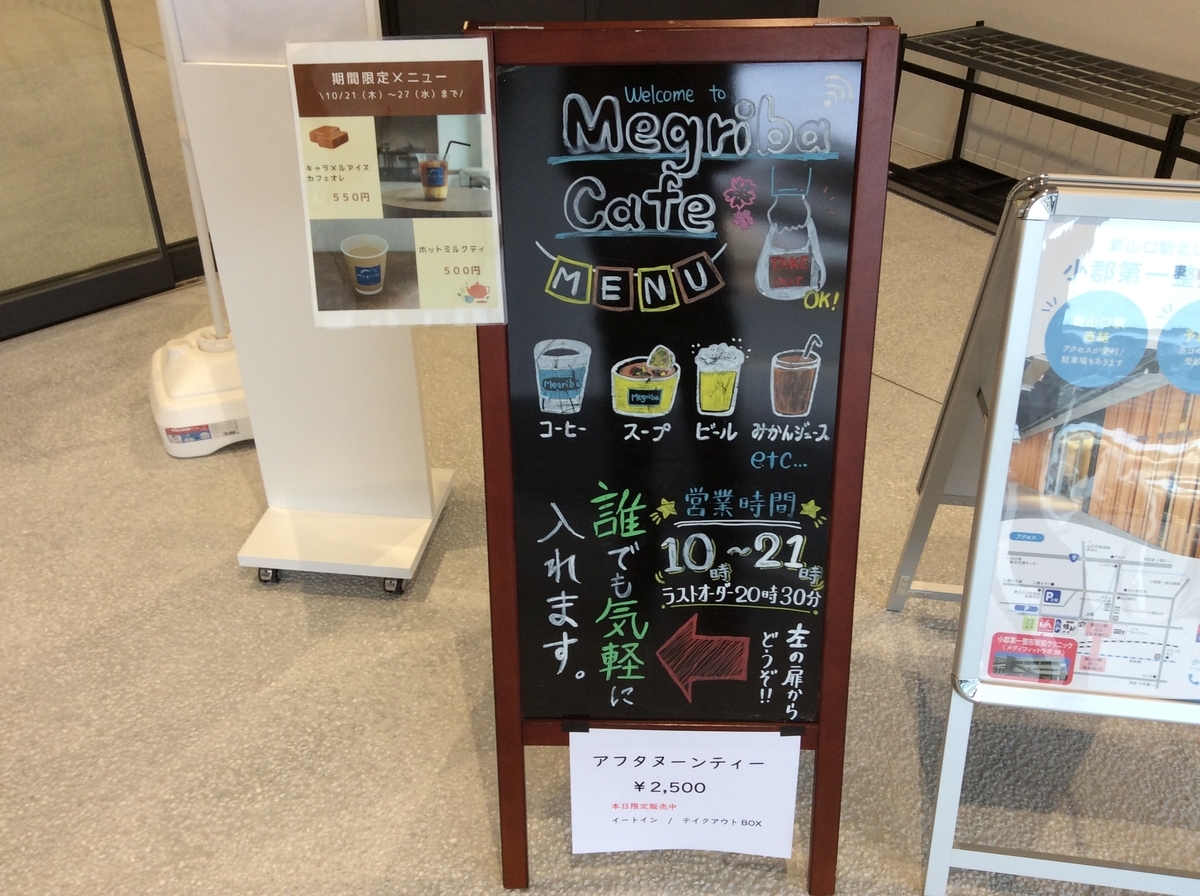 期間限定メニュー
\10/21（木）～27（水）まで/
キャラメルアイス
カフェオレ
550円
ホットミルクティ
500円
Welcome to
Megriba
Cafe
MENU
TAKE
OUT
OK!
Megriba
Megriba
コーヒー
スープ
ビール
みかんジュース
etc...
営業時間
10時～21時
ラストオーダー20時30分
誰でも気軽に
入れます。
左の扉から
どうぞ!!
アフタヌーンティー
￥2,500
本日限定販売中
イートイン / テイクアウトBOX
新山口駅北
小郡第一整
新山口駅
直結
アクセスが便利!
駐車場もあります
アクセス
P
小郡第一整形駅前クリニック
(メディフィットラボ 2F)